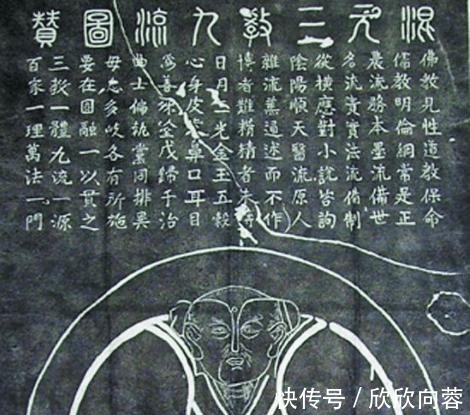 混元三教九流圖贊
佛教見性道教保命
儒教明倫綱常是正
農流務本墨流備世
名流責實法流輔制
從橫應對小說咨詢
陰陽順天醫流原人
雜流兼通述而不作
博者難精精者未博
日月三光金玉五穀
心身皮膚鼻口耳目
為善殊途咸歸于治
曲士偏執黨同排異
毋患多歧各有所施
要在圓融一以貫之
三教一體九流一源
百家一理萬法一門
快传号 / 欣欣向蓉